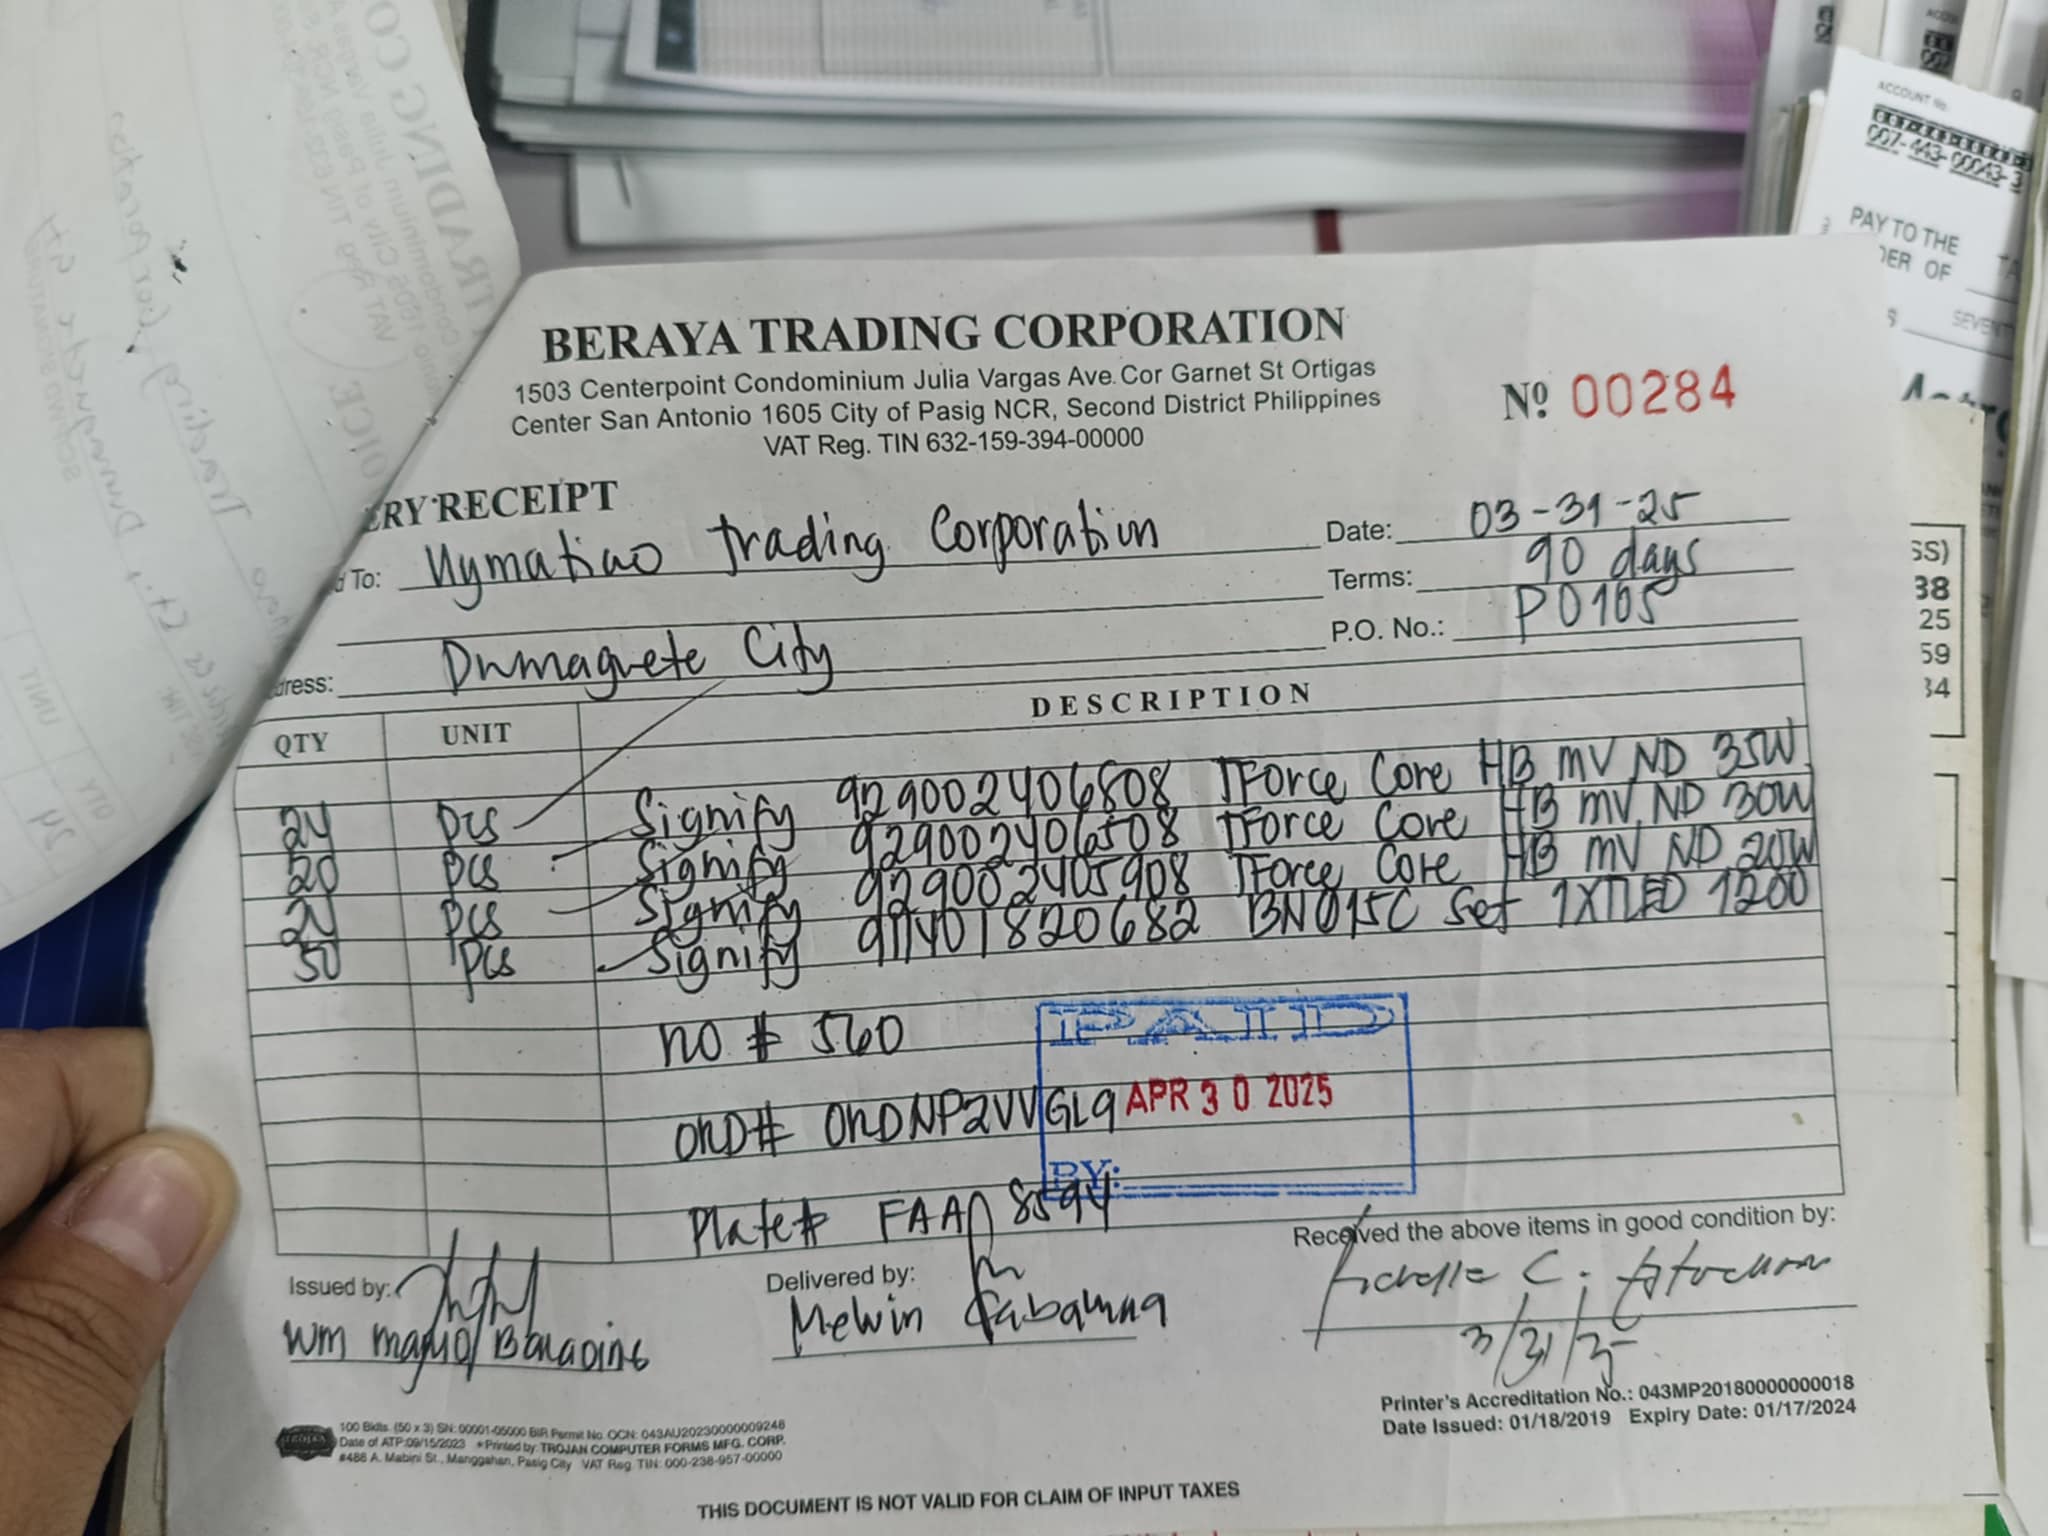 BERAYA TRADING CORPORATION
1503 Centerpoint Condominium Julia Vargas Ave. Cor Garnet St Ortigas
Center San Antonio 1605 City of Pasig NCR, Second District Philippines
VAT Reg. TIN 632-159-394-00000
Nº 00284
ERY RECEIPT
d To: Uymatiao Trading Corporation
Date: 03-31-25
Terms: 90 days
P.O. No.: PO105
dress: Dumaguete City
QTY UNIT DESCRIPTION
24 pcs Signify 929002406808 TForce Core HB MV ND 35W
20 pcs Signify 929002406508 TForce Core HB MV ND 30W
24 pcs Signify 929002405908 TForce Core HB MV ND 20W
50 pcs Signify 911401820682 BN015C Set 1XTLED 1200
# 560
PAID
APR 30 2025
BY:
Plate# FAA 8594
Issued by:
Delivered by:
Melwin
Received the above items in good condition by:
C.
3/31/25
Printer's Accreditation No.: 043MP20180000000018
Date Issued: 01/18/2019 Expiry Date: 01/17/2024
100 Bklts. (50 x 3) SN: 00001-05000 BIR Permit No. OCN: 043AU20230000009248
Date of ATP:09/15/2023 *Printed by: TROJAN COMPUTER FORMS MFG. CORP.
#488 A. Mabini St., Manggahan, Pasig City VAT Reg. TIN: 000-238-957-00000
THIS DOCUMENT IS NOT VALID FOR CLAIM OF INPUT TAXES
ACCOUNT No.
PAY TO THE
DER OF
SS)
38
25
59
34